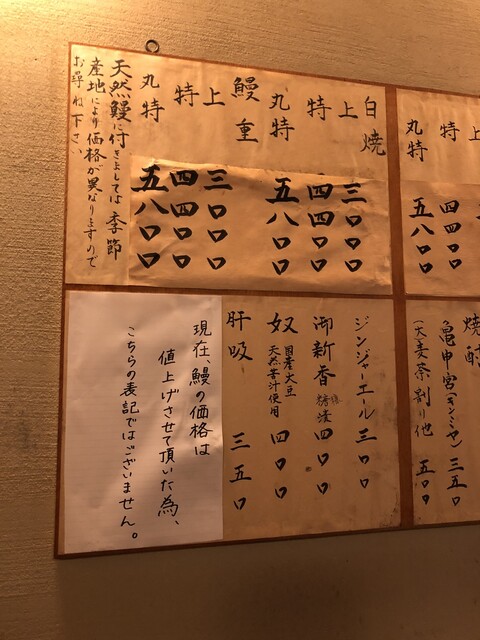 特 四四〇〇
丸特 五八〇〇
白焼
上 三〇〇〇
特 四四〇〇
丸特 五八〇〇
鰻重
上 三〇〇〇
特 四四〇〇
丸特 五八〇〇
天然鰻に付きましては季節
産地により価格が異なりますので
お尋ね下さい
焼酎
亀甲宮(キンミヤ) 三五〇
(大麦茶割り他 五〇〇
ジンジャーエール 三〇〇
御新香 糠漬 四〇〇
奴 国産大豆
天然苦汁使用 四〇〇
肝吸 三五〇
現在、鰻の価格は
値上げさせて頂いた為、
こちらの表記ではございません。